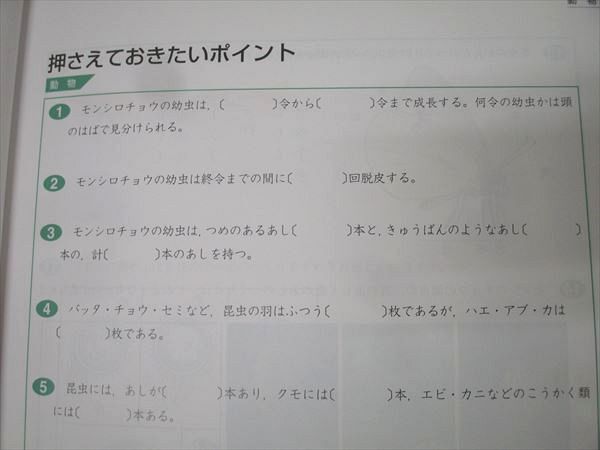 動物
押さえておきたいポイント
動物
1 モンシロチョウの幼虫は，(　　　)令から(　　　)令まで成長する。何令の幼虫かは頭
のはばで見分けられる。
2 モンシロチョウの幼虫は終令までの間に(　　　)回脱皮する。
3 モンシロチョウの幼虫は，つめのあるあし(　　　)本と，きゅうばんのようなあし(　　　)
本の，計(　　　)本のあしを持つ。
4 バッタ・チョウ・セミなど，昆虫の羽はふつう(　　　)枚であるが，ハエ・アブ・カは
(　　　)枚である。
5 昆虫には，あしが(　　　)本あり，クモには(　　　)本，エビ・カニなどのこうかく類
には(　　　)本ある。